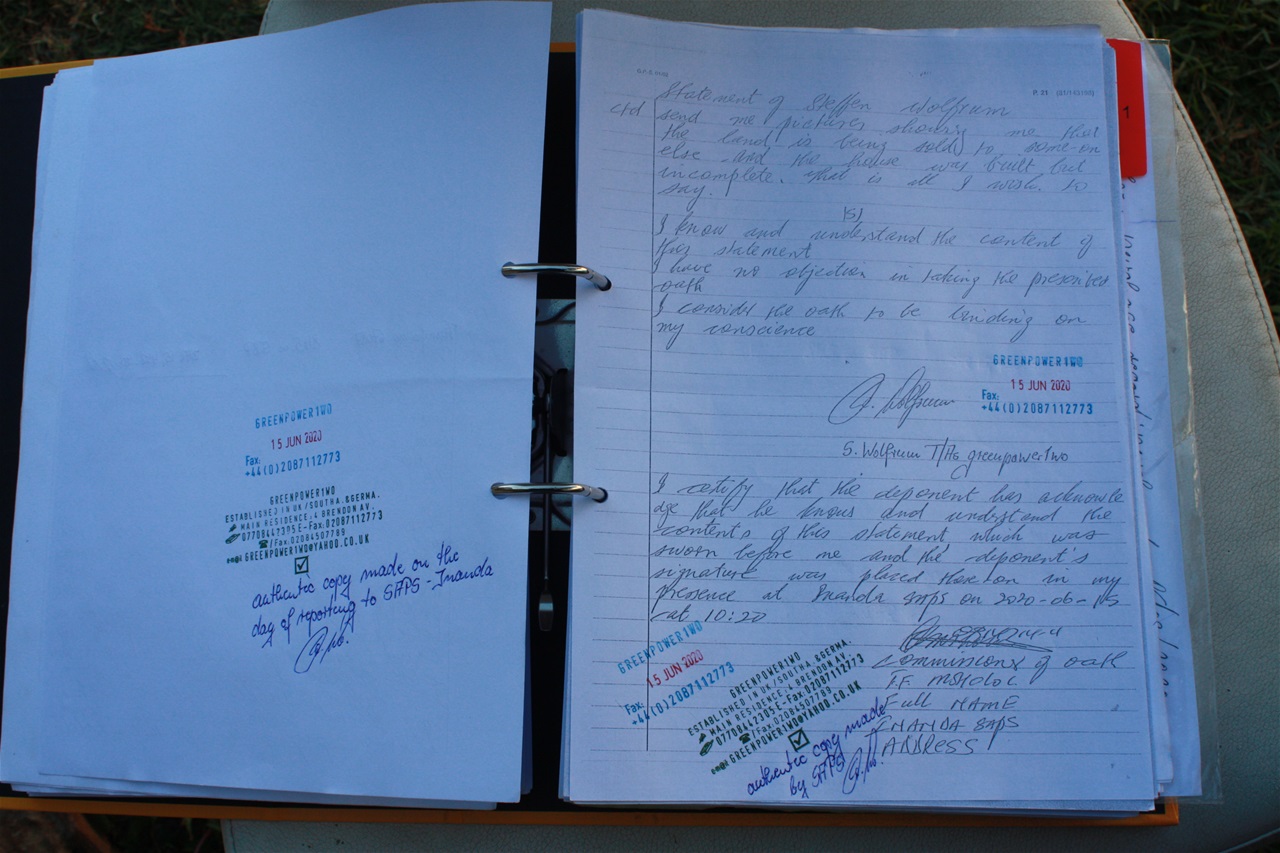 GREENPOWER1WO
15 JUN 2020
Fax:
+44(0)2087112773
GREENPOWER1WO
ESTABLISHED IN UK/SOUTHA.&GERMA.
MAIN RESIDENCE,4 BRENDON AV.
07708447305 E-Fax:02087112773
/Fax:02084507789
GREENPOWER1WO@YAHOO.CO.UK
authentic copy made on the
day of reporting to SAPS-Inanda
P. 21
1
Statement of Steffen Wolfrum
ctd
send me pictures showing me that
the land is being sold to some-on
else and the house was built but
incomplete. that is all I wish to
say.
I know and understand the content of
this statement
I have no objection in taking the prescribed
oath
I consider the oath to be binding on
my conscience
GREENPOWER1WO
15 JUN 2020
Fax:
+44(0)2087112773
S. Wolfrum T/As greenpowertwo
I certify that the deponent has acknowle
dge that he knows and understand the
contents of this statement which was
sworn before me and the deponent's
signature was placed thereon in my
presence at Inanda saps on 2020-06-15
at 10:20
commissioner of oath
Full NAME
INANDA SAPS
ADDRESS
GREENPOWER1WO
15 JUN 2020
Fax:
+44(0)2087112773
GREENPOWER1WO
ESTABLISHED IN UK/SOUTHA.&GERMA.
MAIN RESIDENCE,4 BRENDON AV.
07708447305 E-Fax:02087112773
/Fax:02084507789
GREENPOWER1WO@YAHOO.CO.UK
authentic copy made
by SAPS